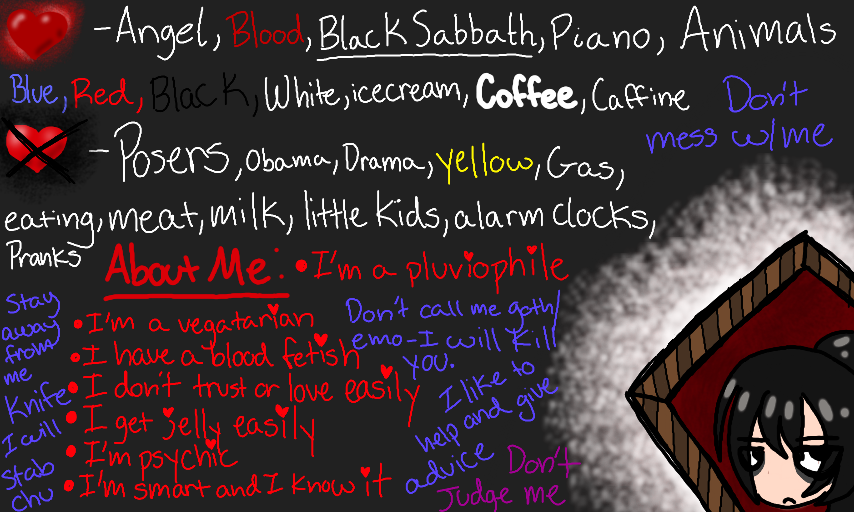 -Angel, Blood, Black Sabbath, Piano, Animals
Blue, Red, Black, White, icecream, Coffee, Caffine
Don't
mess w/me
-Posers, Obama, Drama, yellow, Gas,
eating, meat, milk, little kids, alarm clocks,
Pranks
About Me:
•I'm a pluviophile
•I'm a vegatarian
•I have a blood fetish
•I don't trust or love easily
•I get jelly easily
•I'm psychic
•I'm smart and I know it
Stay
away
from
me
Knife
I will
stab
chu
Don't call me goth/
emo-I will kill
you.
I like to
help and give
advice
Don't
Judge me